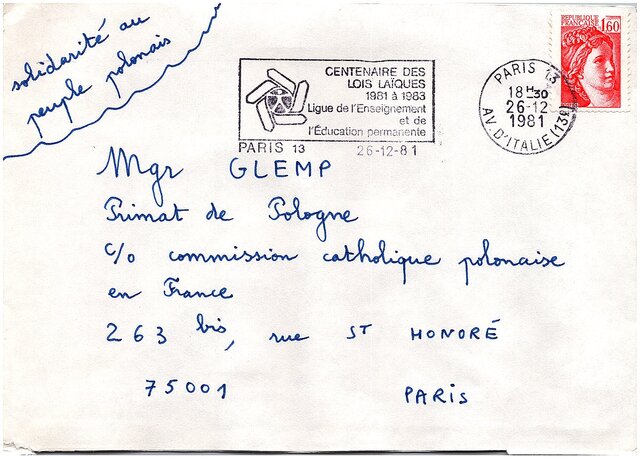 solidarité au
peuple polonais
CENTENAIRE DES
LOIS LAÏQUES
1981 à 1983
Ligue de l'Enseignement
et de
l'Éducation permanente
PARIS 13 26-12-81
PARIS 13
18H30
26-12
1981
AV. D'ITALIE (13e)
REPUBLIQUE
FRANÇAISE 1,60
Mgr GLEMP
Primat de Pologne
c/o commission catholique polonaise
en France
263 bis, rue ST HONORÉ
75001 PARIS